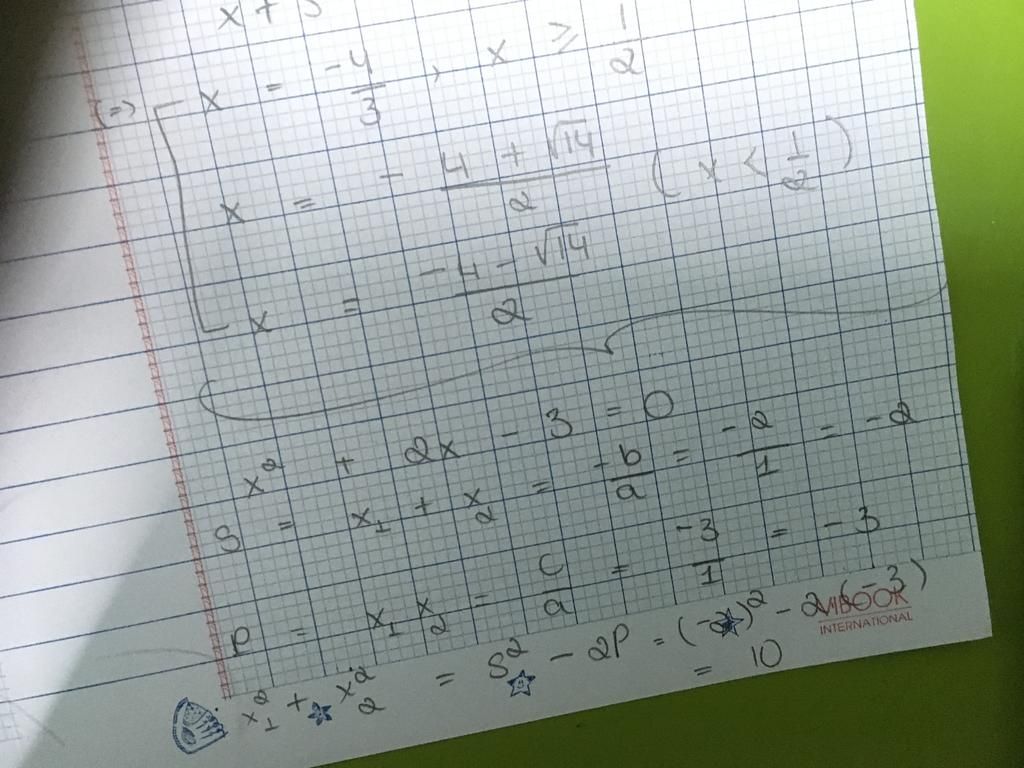 x + 3
(=) x = -4/3, x ≥ 1/2
x = - 4 + √14 / 2 ( x < 1/2 )
x = -4 - √14 / 2
x² + 2x - 3 = 0
S = x₁ + x₂ = -b/a = -2/1 = -2
P = x₁ x₂ = c/a = -3/1 = -3
x₁² + x₂² = S² - 2P = (-2)² - 2(-3)
= 10
VIBOOK
INTERNATIONAL